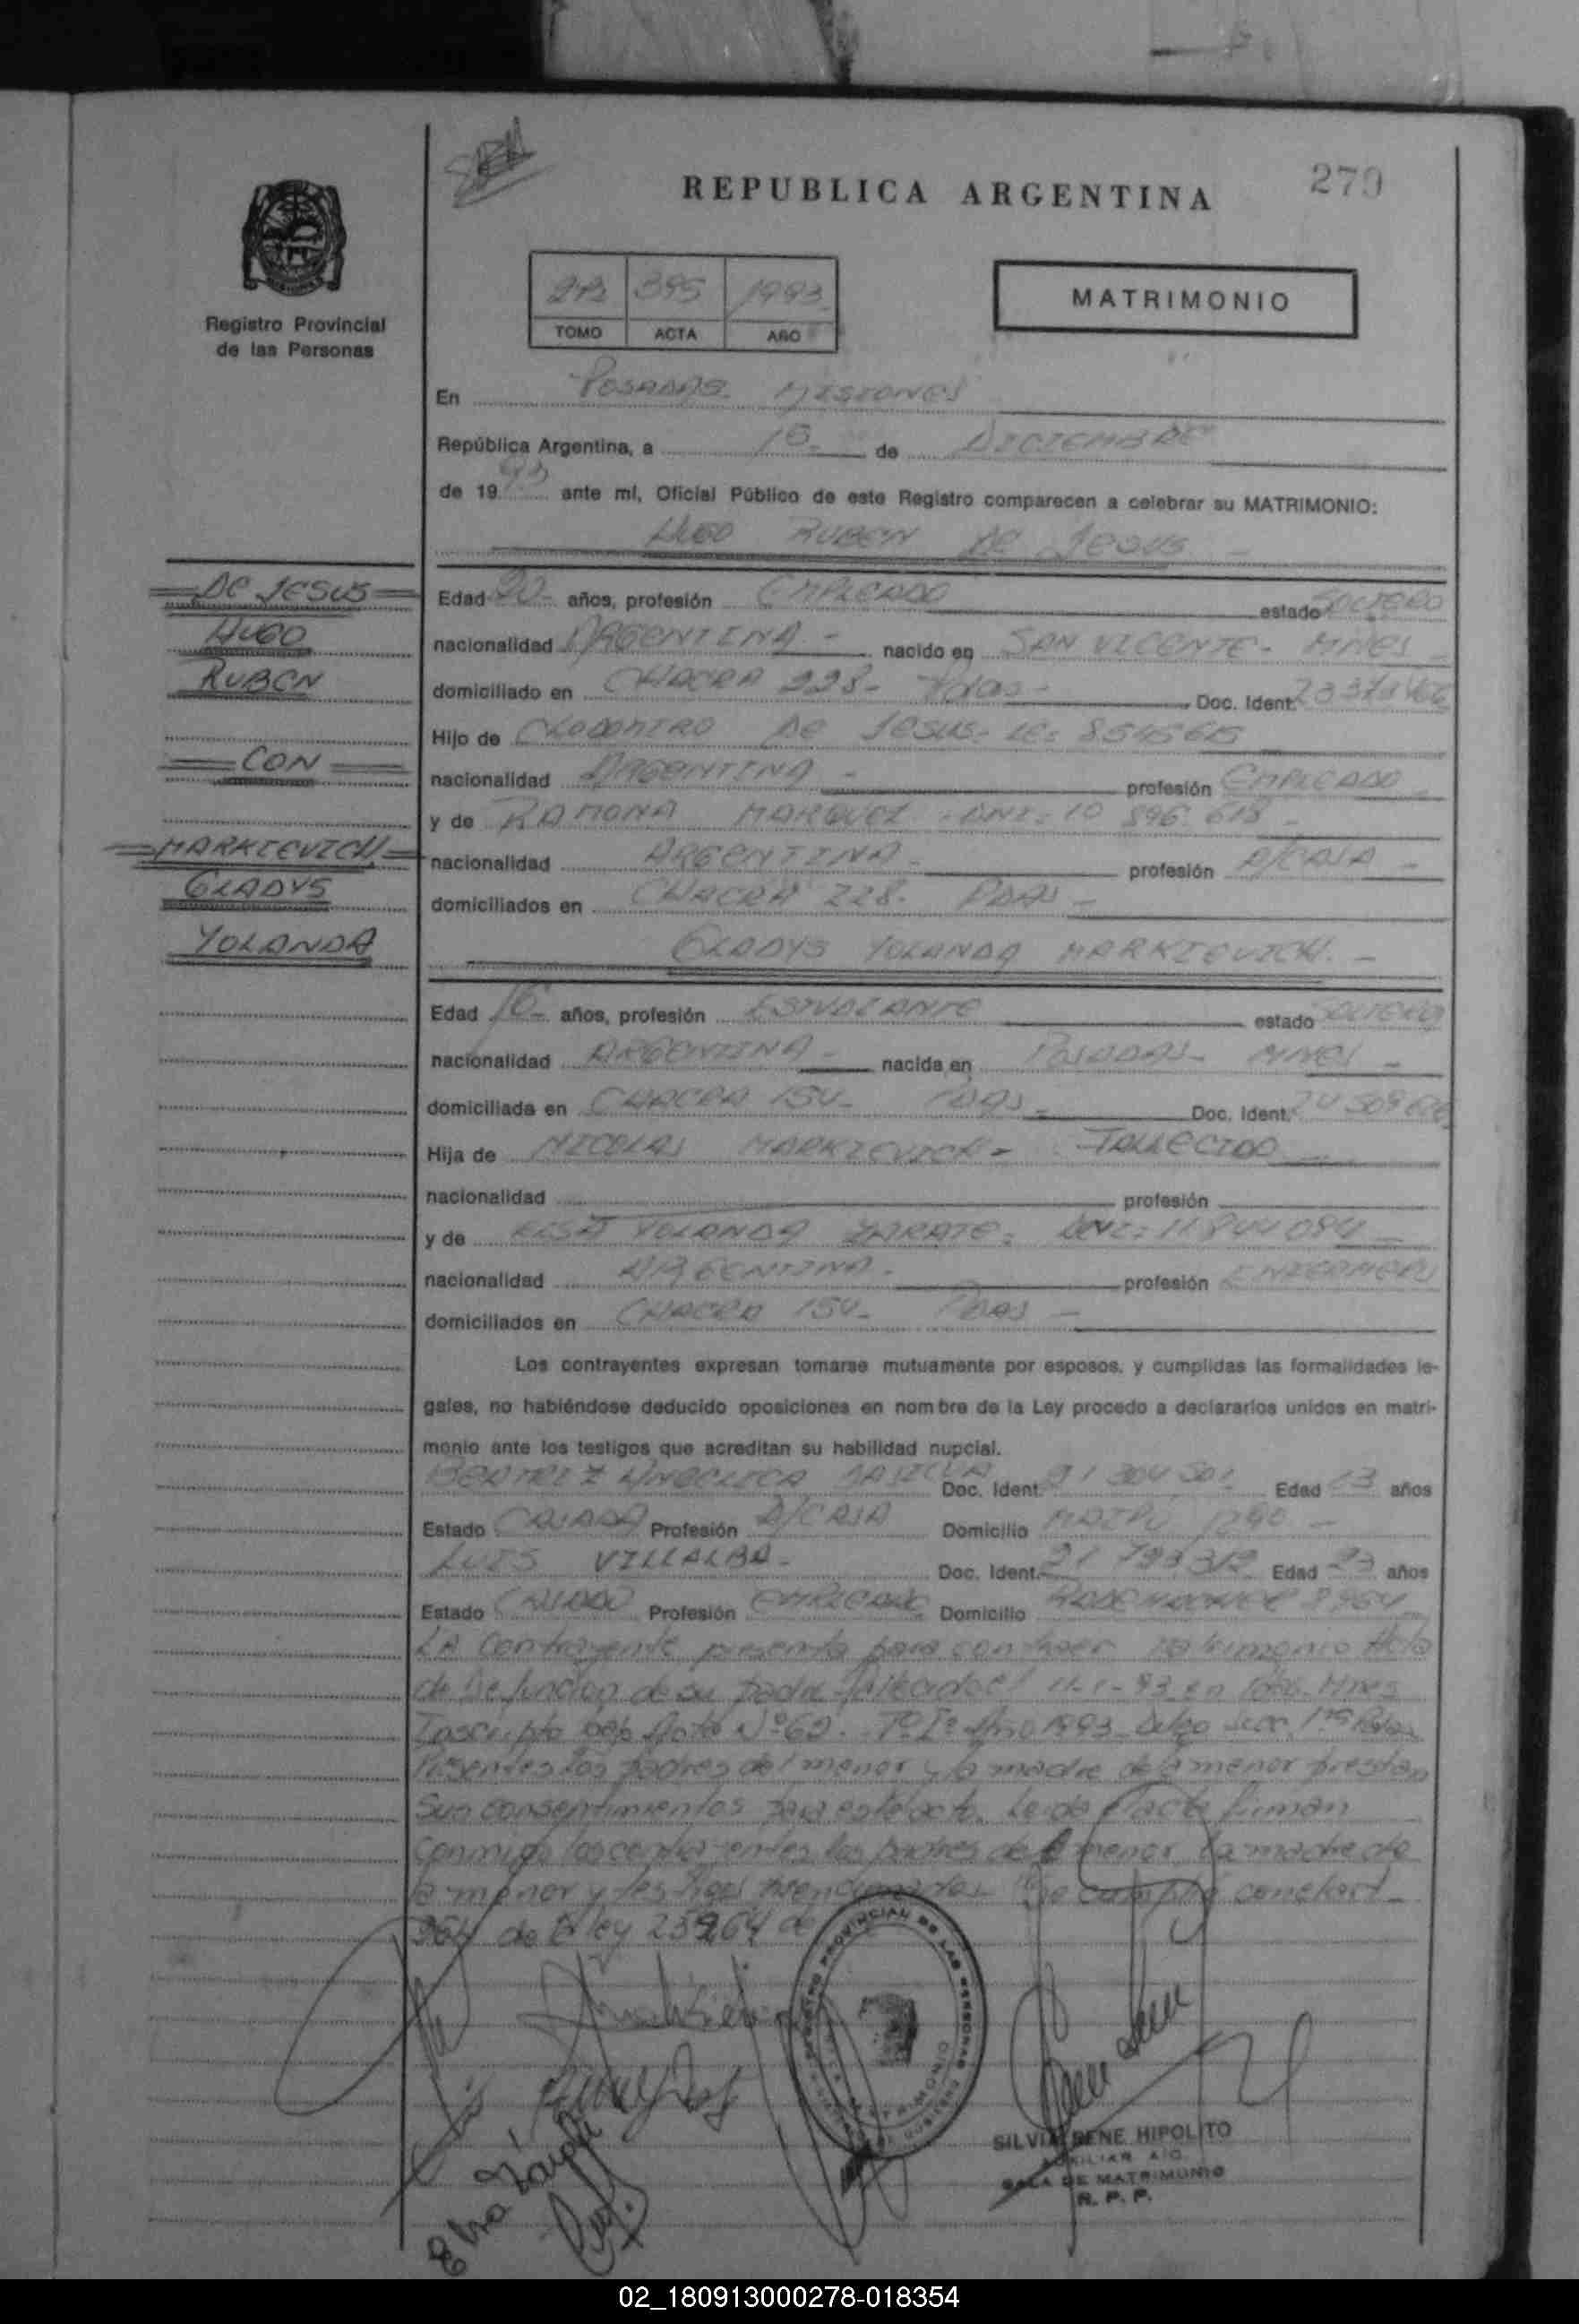 279
REPUBLICA ARGENTINA
Registro Provincial
de las Personas
395 1993
TOMO ACTA AÑO
MATRIMONIO
En POSADAS. MISIONES
República Argentina, a de DICIEMBRE
de 1993 ante mí, Oficial Público de este Registro comparecen a celebrar su MATRIMONIO:
HUGO RUBEN DE JESUS
DE JESUS
HUGO
RUBEN
CON
MARKIEVICH
GLADYS
YOLANDA
Edad 20 años, profesión EMPLEADO estado SOLTERO
nacionalidad ARGENTINA - nacido en SAN VICENTE - MNES -
domiciliado en CHACRA 228 - Pdas - Doc. Ident.
Hijo de CLODOMIRO DE JESUS - LE:
nacionalidad ARGENTINA - profesión EMPLEADO
y de RAMONA MARQUEZ - DNI: 10 896. 618 -
nacionalidad ARGENTINA - profesión A/CASA -
domiciliados en CHACRA 228 - PDAS -
GLADYS YOLANDA MARKIEVICH. -
Edad 16 años, profesión ESTUDIANTE estado SOLTERA
nacionalidad ARGENTINA - nacida en POSADAS - MNES -
domiciliada en CHACRA 154 - PDAS - Doc. Ident.
Hija de NICOLAS MARKIEVICH - FALLECIDO
nacionalidad profesión
y de ELSA YOLANDA ZARATE - DNI: 11 844 084 -
nacionalidad ARGENTINA - profesión ENFERMERA
domiciliados en CHACRA 154 - PDAS -
Los contrayentes expresan tomarse mutuamente por esposos, y cumplidas las formalidades le-
gales, no habiéndose deducido oposiciones en nombre de la Ley procedo a declararlos unidos en matri-
monio ante los testigos que acreditan su habilidad nupcial.
BEATRIZ ANGELICA Doc. Ident. Edad años
Estado CASADA Profesión A/CASA Domicilio MAIPU 1290 -
LUIS VILLALBA - Doc. Ident. 21 793312 Edad 23 años
Estado CASADO Profesión EMPLEADO Domicilio
La contrayente presenta para contraer matrimonio Acta
de Defunción de su padre fallecido el 11-1-93 en Pdas. Mnes
Inscripto bajo Acta Nº 62. Tº Iº Año 1993 - Secc. 1ra Pdas
Presentes los padres del menor y la madre de la menor prestan
sus consentimientos para este acto. Leida el acta firman
conmigo los contrayentes los padres del menor la madre de
la menor y testigos mencionados Se cumplió con el art
de la ley
REGISTRO PROVINCIAL DE LAS PERSONAS
MATRIMONIO
SILVIA RENE HIPOLITO
AUXILIAR A/C
SALA DE MATRIMONIO
R. P. P.
02_180913000278-018354